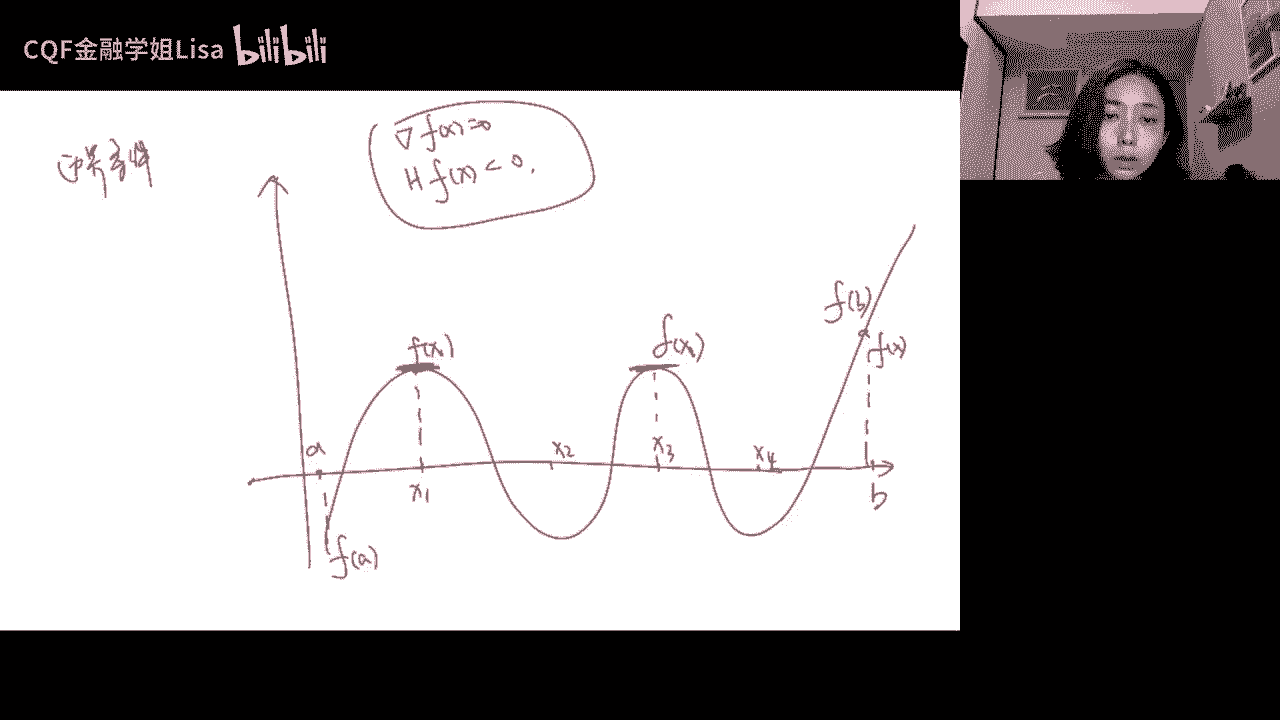 CQF金融学姐Lisa bilibili
∇ f(x)=0
H f(x) < 0.
边界条件
f(b)
f(x)
f(x)
f(x)
a
x2
x3
x4
x1
b
f(a)